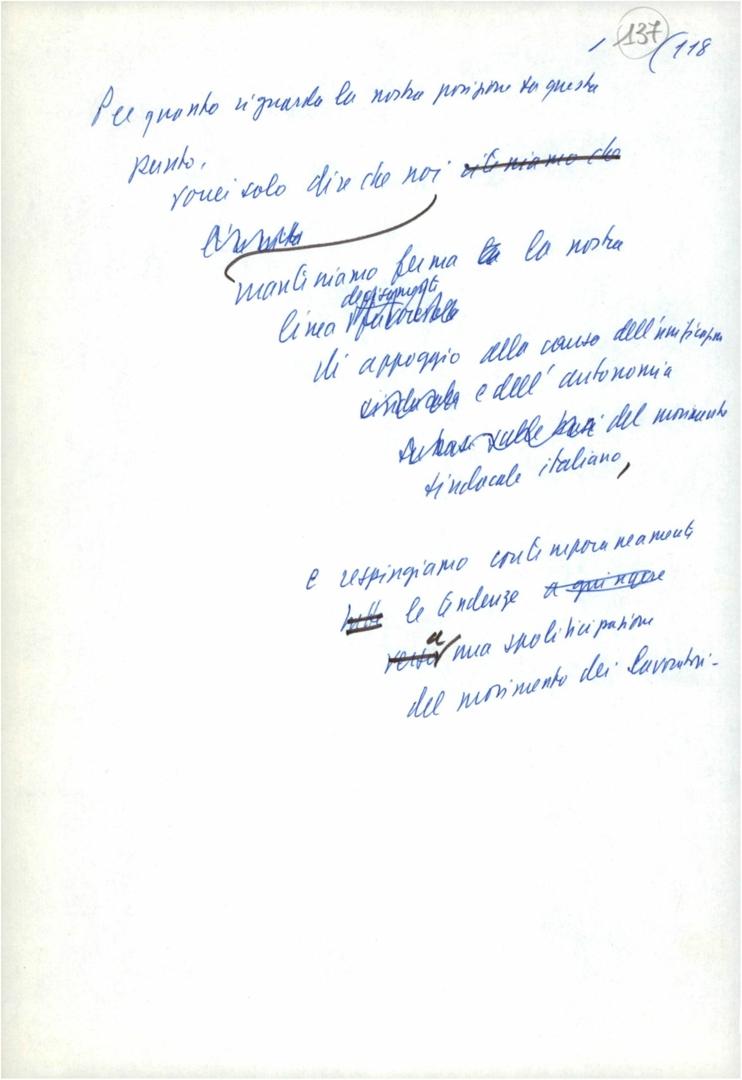 137
(118
Per quanto riguarda la nostra posizione su questo
punto,
vorrei solo dire che noi riteniamo che
manteniamo ferma la nostra
linea
di appoggio alla causa dell'unificazione
sindacale e dell'autonomia
del movimento
sindacale italiano,
e respingiamo contemporaneamente
tutte le tendenze a spingere
verso a una spoliticizzazione
del movimento dei lavoratori-